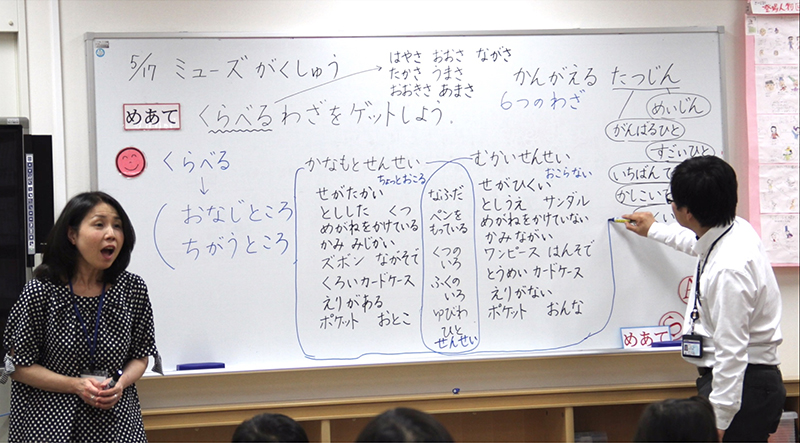 5/17 ミューズ がくしゅう
はやさ おおさ ながさ
たかさ うまさ
おおきさ あまさ
めあて
くらべるわざをゲットしよう。
かんがえる たつじん
6つのわざ
めいじん
がんばるひと
すごいひと
いちばんて
かしこい
くらべる
おなじところ
ちがうところ
かなもとせんせい
ちょっとおこる
せがたかい
とししたくつ
めがねをかけている
かみ みじかい
ズボン ながそで
くろいカードケース
えりがある
ポケット おとこ
なふだ
ペンを
もっている
くつの
いろ
ふくの
いろ
ゆびわ
ひと
せんせい
むかいせんせい
おこらない
せがひくい
としうえ サンダル
めがねをかけていない
かみ ながい
ワンピース はんそで
とうめい カードケース
えりがない
ポケット おんな
めあて